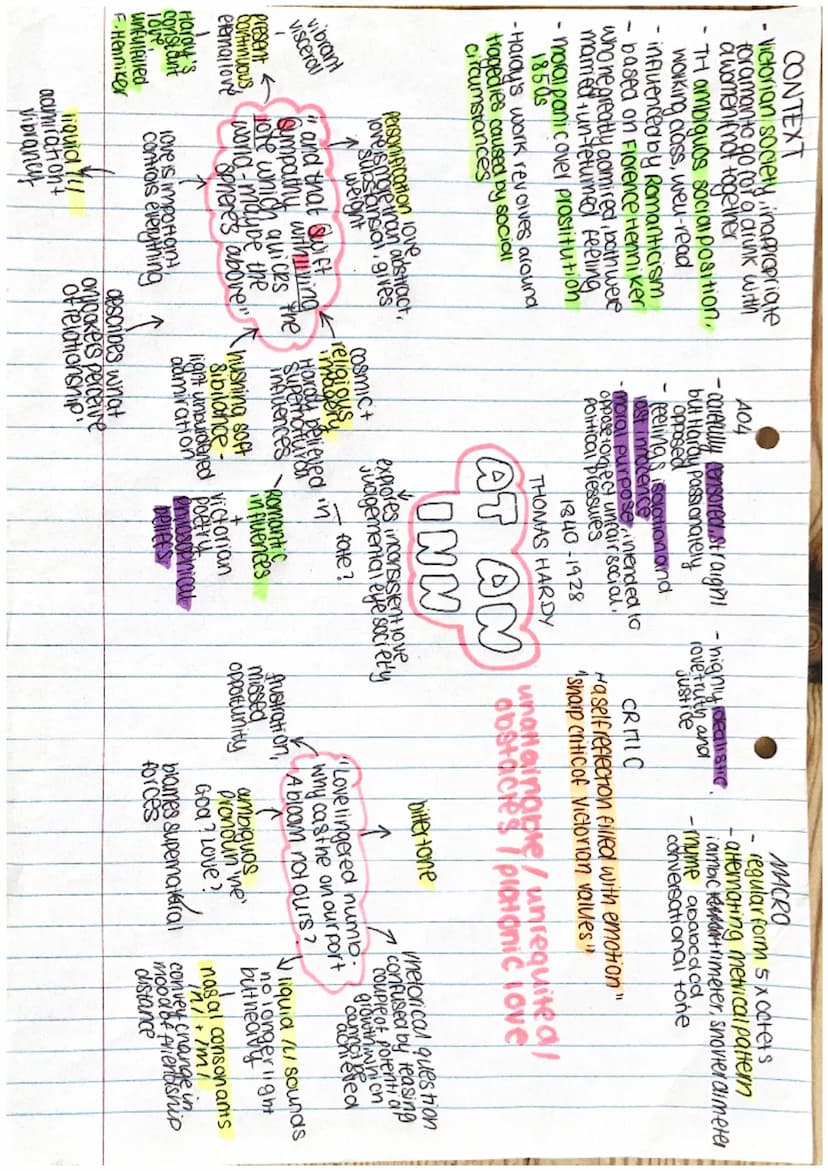 CONTEXT
- Victorian society, inappropriate
for a man to go for a drink with
a women if not together
- TH ambiguos social position,
working class, well-read
- influenced by Romanticism
- based on Florence Henniker
who he greatly admired, both were
married + un-returned feeling
- moral panic over prostitution
1850s
- Hardy's work revolves around
tragedies caused by social
circumstances
A04
- carefully censored straight
but Hardy passionately
opposed
- feelings isolation and
lost innocence
- moral purpose, intended to
oppose/reject unfair social,
political pleasures
- highly idealistic,
love truth and
justice
MACRO
- regular form 5 x octets
- alternating metrical pattern
iambic trimeter, shorter dimeter
- rhyme ababcdcd
conversational tone
CRITIC
"a self reflection filled with emotion"
"sharp critic of Victorian values"
AT AN
INN
THOMAS HARDY
1840 - 1928
unattainable / unrequited /
obstacles / platonic love
explores inconsistent love,
judgemental eye society
personification love,
love is more than abstract,
substansial, gives
weight
"and that swift
sympathy with living
love which quicks the
world - maybe the
spheres above"
vibrant
visceral
present
continuous
eternal love
Hardy's
constant
love
unfulfilled
F. Henniker
liquid /l/
admiration +
vibrancy
love is important
controls everything
absribes what
onlookers perceive
of relationship'
cosmic +
religious
imagery
Hardy believed in
supernatural
influences
fate?
hushing soft
sibilance -
light unburdened
admiration
Romantic
influences
+
victorian
poetry
philosophical
beliefs
bitter tone
"Love lingered numb.
Why cast he on our port
A bloom not ours?
rhetorical question
confused by teasing
couple of potential
growth which
cannot be
achieved
frustration,
missed
opportunity
ambiguos
pronoun 'he'
God? Love?
blames supernatural
forces
liquid /l/ sounds
no longer light
but heavy
nasal consonants
/n/ + /m/
convey change in
mood of friendship
distance